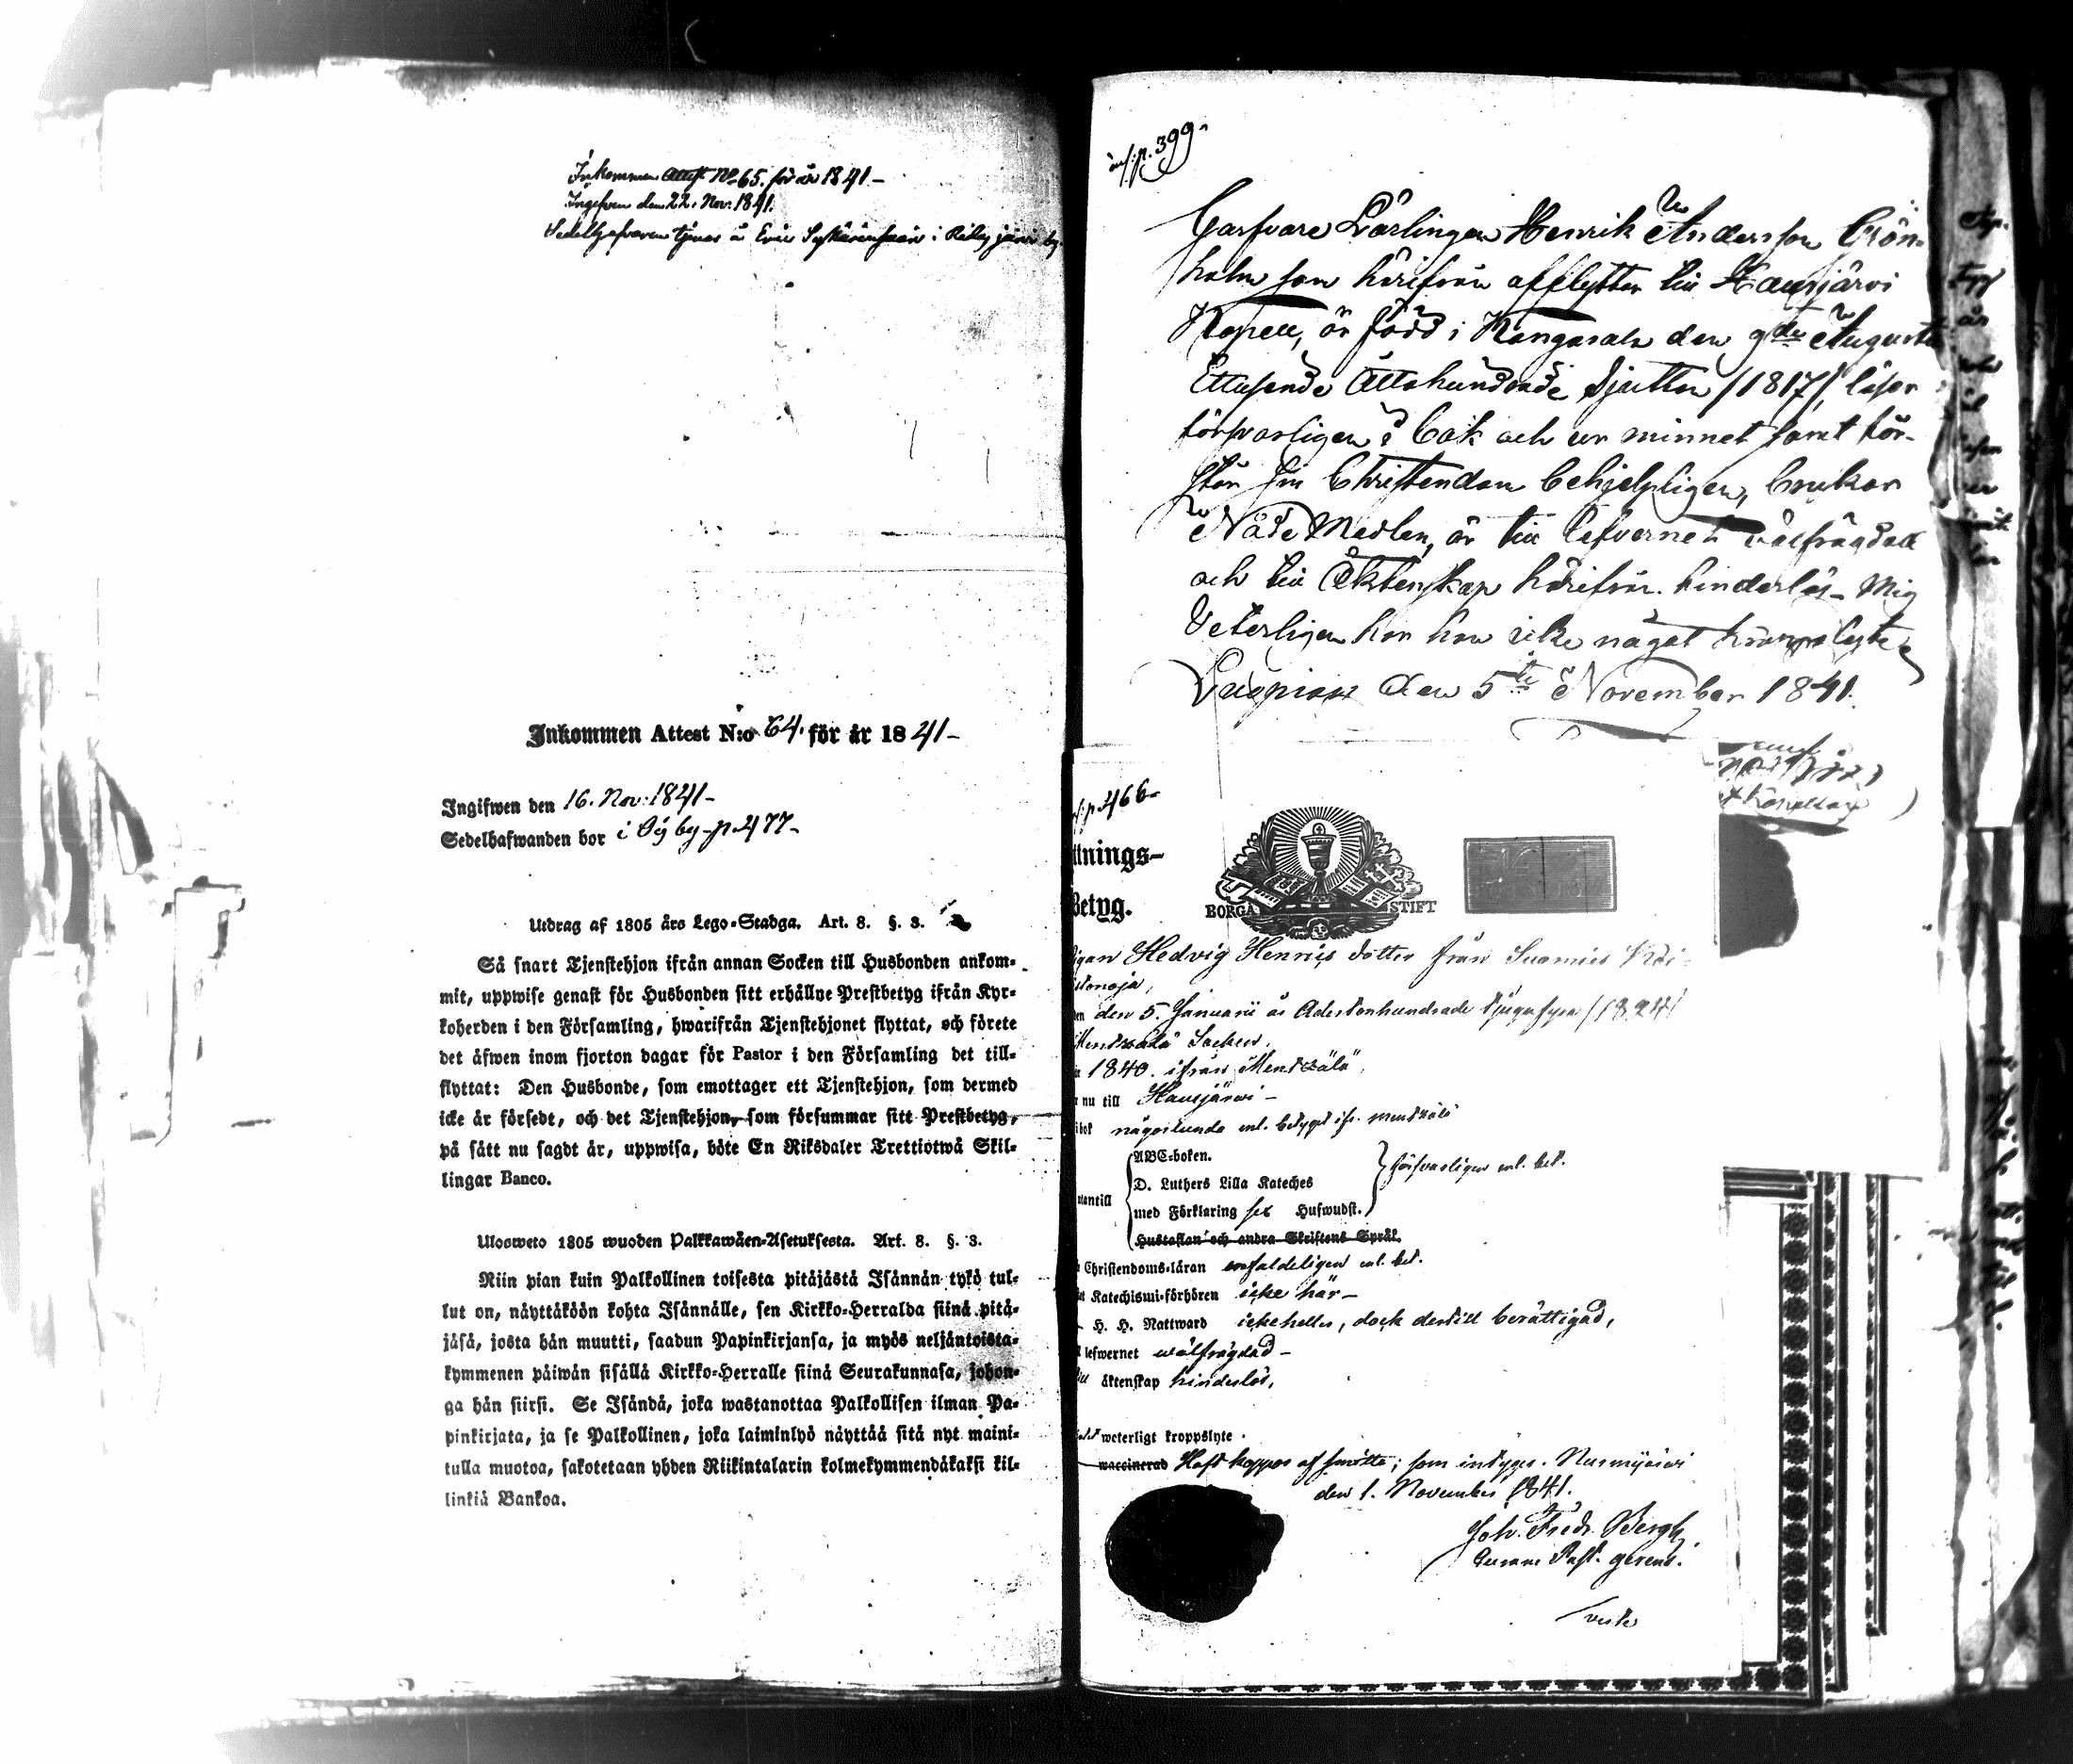 Inkommen Attest No 65. för år 1841 –
Ingifven den 22. Nov. 1841.
Sedelhafvaren tjenar å Erik i by
Inkommen Attest N:o 64. för år 1841 –
Ingifwen den 16. Nov. 1841 –
Sedelhafwanden bor i by – p. 477 –
Utdrag af 1805 års Lego-Stadga. Art. 8. §. 3.
Så snart Tjenstehjon ifrån annan Socken till Husbonden ankom-
mit, uppwise genast för Husbonden sitt erhållne Prestbetyg ifrån Kyr-
koherden i den Församling, hwarifrån Tjenstehjonet flyttat, och förete
det äfwen inom fjorton dagar för Pastor i den Församling det till-
flyttat: Den Husbonde, som emottager ett Tjenstehjon, som dermed
icke är försedt, och det Tjenstehjon, som försummar sitt Prestbetyg,
på sätt nu sagdt är, uppwisa, böte En Riksdaler Trettiotwå Skil-
lingar Banco.
Ulosweto 1805 wuoden Palkkawäen-Asetuksesta. Art. 8. §. 3.
Niin pian kuin Palkollinen toisesta pitäjästä Isännän tykö tul-
lut on, näyttäköön kohta Isännälle, sen Kirkko-Herralda siinä pitä-
jäsä, josta hän muutti, saadun Papinkirjansa, ja myös neljäntoista-
kymmenen päiwän sisällä Kirkko-Herralle siinä Seurakunnasa, johon-
ga hän siirsi. Se Isändä, joka wastanottaa Palkollisen ilman Pa-
pinkirjata, ja se Palkollinen, joka laiminlyö näyttää sitä nyt maini-
tulla muotoa, sakotetaan yhden Riikintalarin kolmekymmendäkaksi kil-
linkiä Bankoa.
inf. p. 399.
Garfvare Lärlingen Henrik Andersson Grön-
holm som härifrån afflyttar till Hausjärvi
Kapell, är född i Kangasala den 9de Augusti
Ettusende Åttahundrade Sjutton /1817/, läser
försvarligen i bok och ur minnet samt för-
står sin Christendom behjelpligen, brukar
Nåde Medlen, är till lefvernet välfrägdad
och till Äktenskap härifrån hinderlös – Mig
Veterligen har han icke något kroppslyte.
den 5te November 1841.
inf. p. 466
ttnings-
Betyg.
BORGÅ STIFT
Pigan Hedvig Henrics dotter från
den 5. Januarii år Adertonhundrade tjugufyra /1824/
Mentzälä Socken.
1840. ifrån Mentzälä,
nu till Hausjärvi –
i bok någorlunda enl. betyget ifr. Mentzälä
utantill
ABC-boken.
D. Luthers Lilla Kateches
med Förklaring sex Hufwudst.
försvarligen enl. bet.
Hustaflan och andra Skriftens Språk.
Christendoms-läran enfaldeligen enl. bet.
Katechismi-förhören icke här –
H. H. Nattward icke heller, dock dertill berättigad,
lefwernet wälfrägdad –
till äktenskap hinderlös,
weterligt kroppslyte
waccinerad Haft koppor af smitta; som intygar. Nurmijärvi
den 1. November 1841.
Joh. Fredr. Bergh,
Past. gerens.